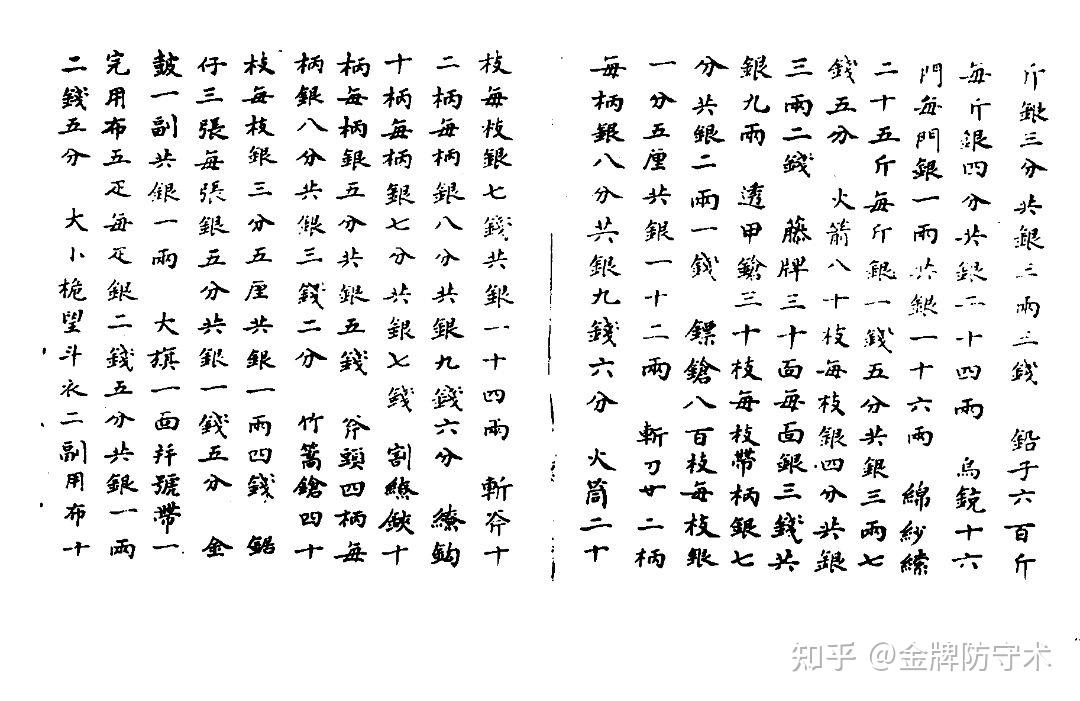 斤銀三分共銀三兩三錢　鉛子六百斤
每斤銀四分共銀二十四兩　鳥銃十六
門每門銀一兩共銀一十六兩　綿紗縤
二十五斤每斤銀一錢五分共銀三兩七
錢五分　火箭八十枝每枝銀四分共銀
三兩二錢　藤牌三十面每面銀三錢共
銀九兩　透甲鎗三十枝每枝帶柄銀七
分共銀二兩一錢　鏢鎗八百枝每枝銀
一分五厘共銀一十二兩　斬刀廿二柄
每柄銀八分共銀九錢六分　火筒二十
枝每枝銀七錢共銀一十四兩　斬斧十
二柄每柄銀八分共銀九錢六分　繚鈎
十柄每柄銀七分共銀七錢　割繚鋏十
柄每柄銀五分共銀五錢　斧頭四柄每
柄銀八分共銀三錢二分　竹篙鎗四十
枝每枝銀三分五厘共銀一兩四錢　鋸
仔三張每張銀五分共銀一錢五分　金
鼓一副共銀一兩　大旗一面并號帶一
完用布五疋每疋銀二錢五分共銀一兩
二錢五分　大小桅望斗衣二副用布十
知乎 @金牌防守术